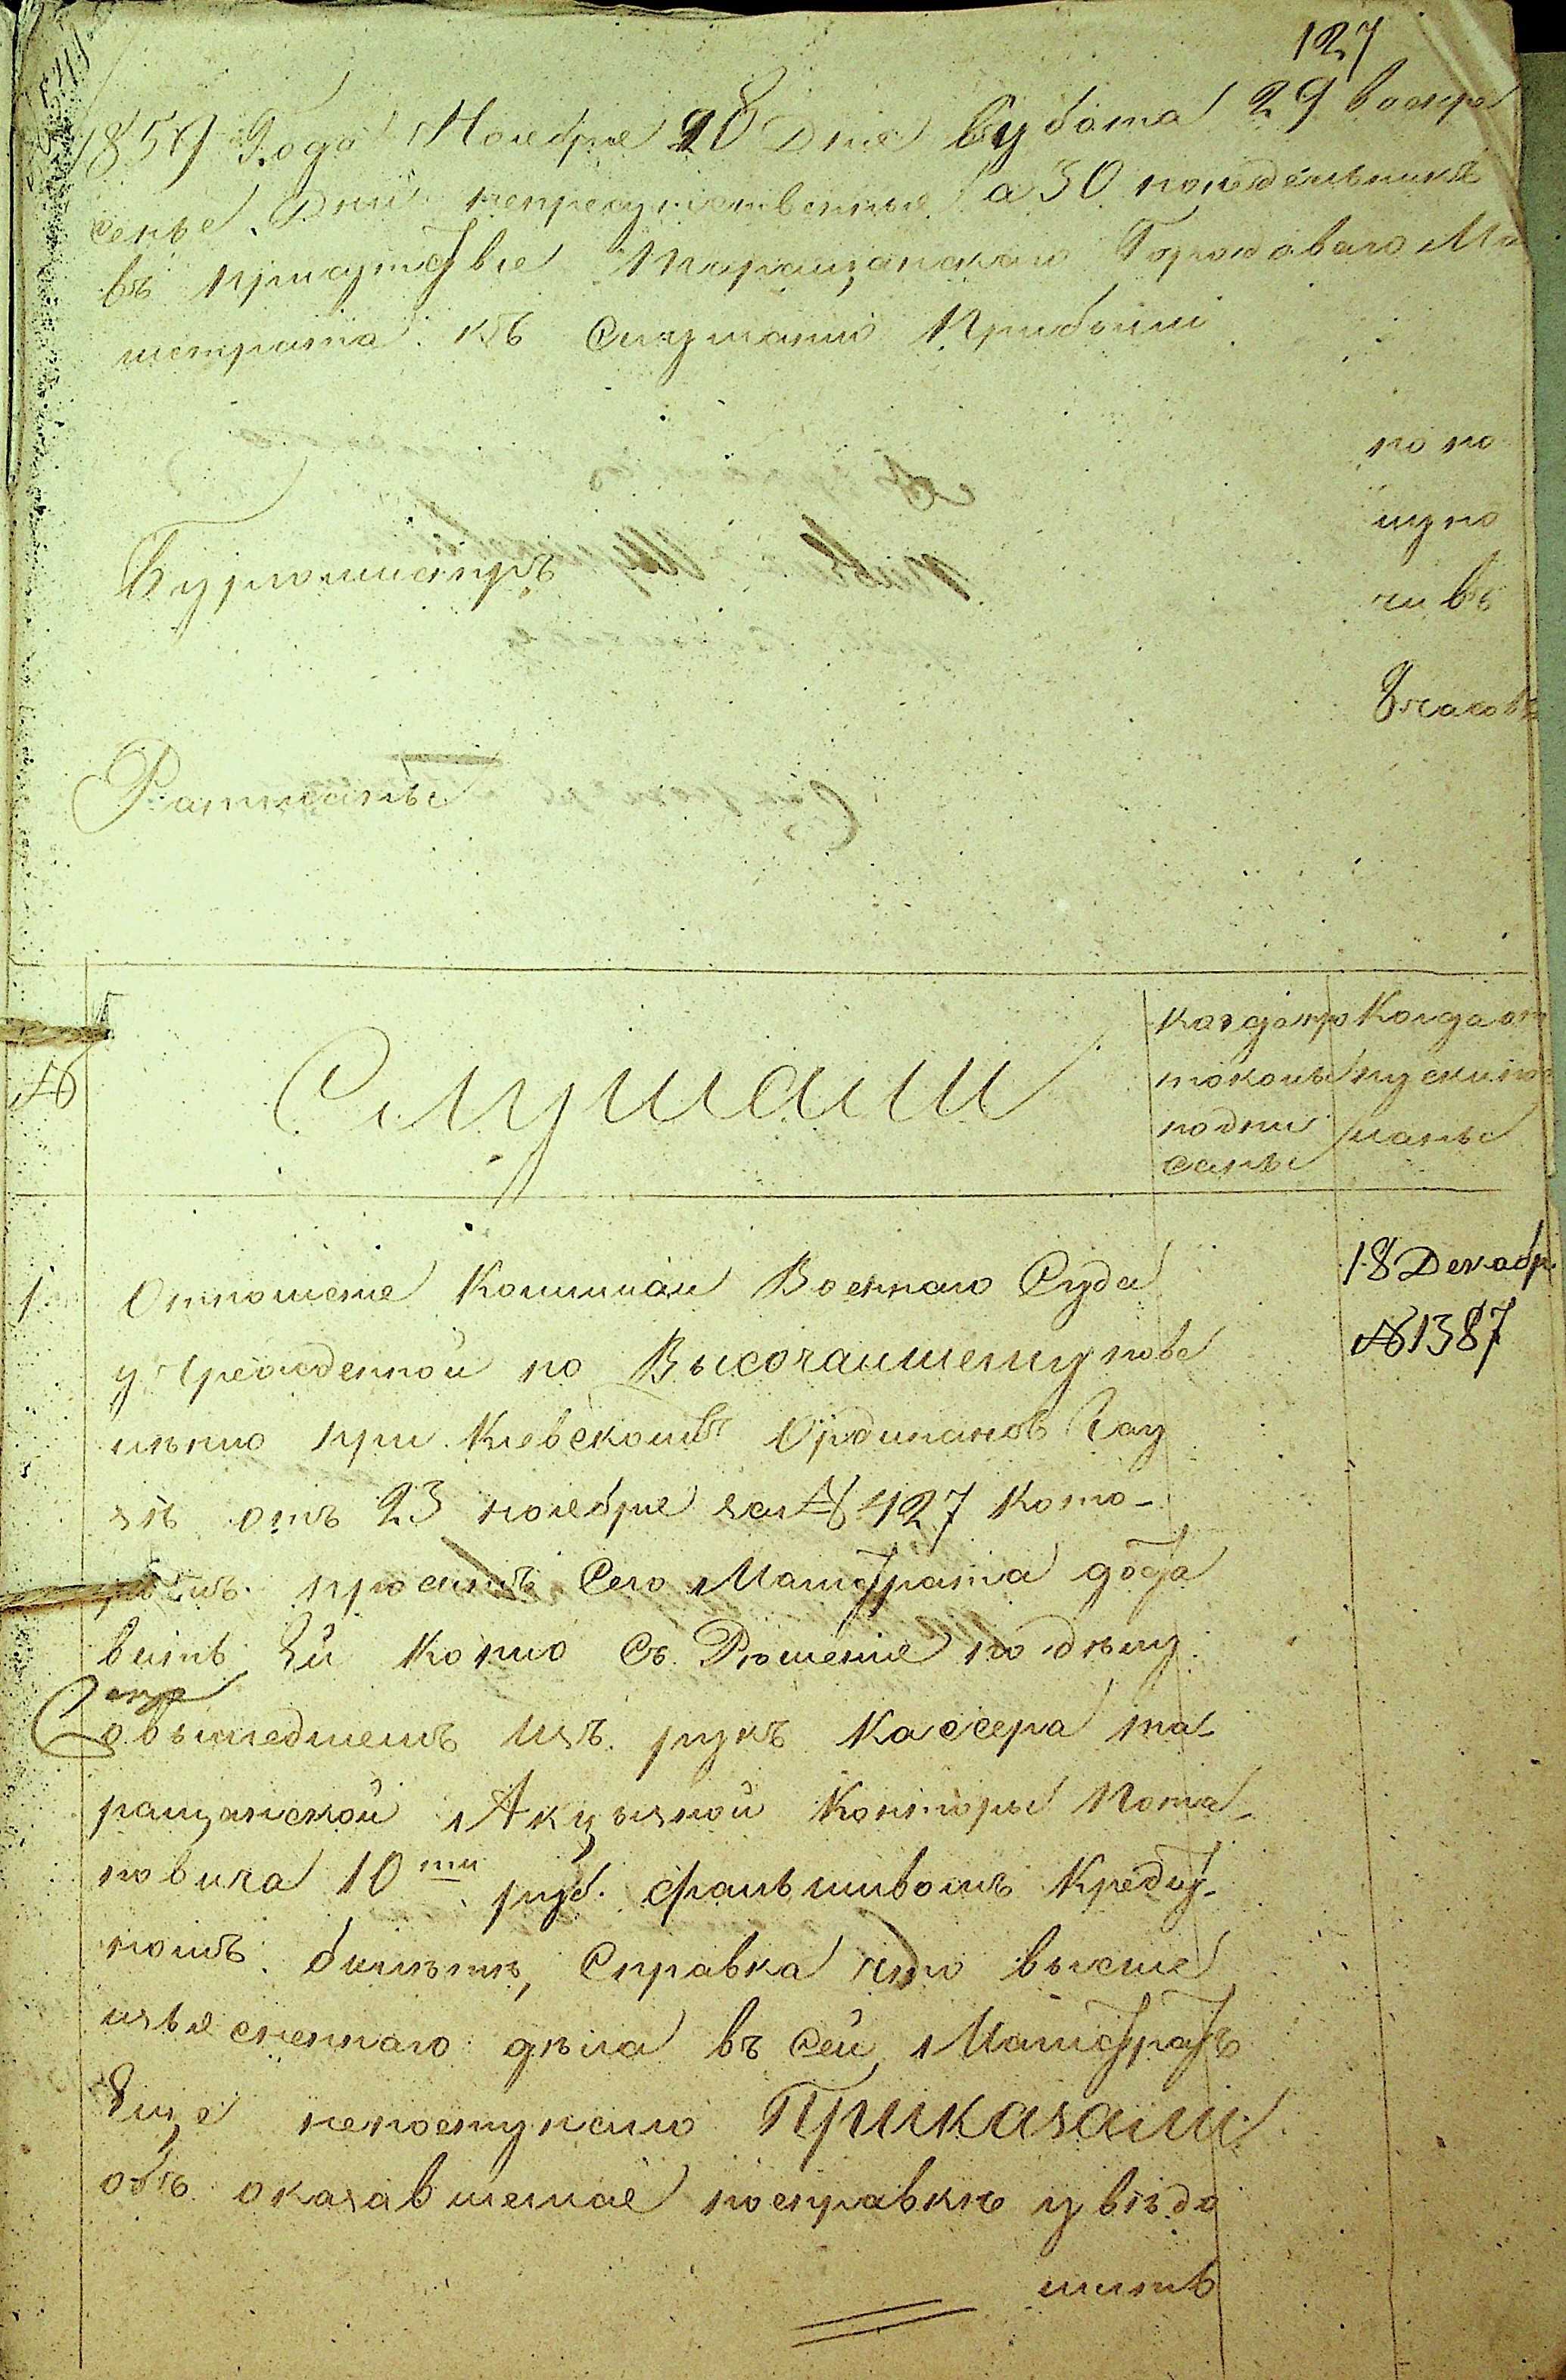 127
1859 Года Ноября 28 Дня Субота 29 воскре
сенье Дни неприсуственные а 30 понедельникъ
въ присутствіе Таращанскаго Городоваго Ма
гистрата къ Слушанію Прибыли
по по
лу но
чи въ
Бургомистръ
8 часовъ
Ратманы
№
Слушали
Когда про
токолъ
подпи
санъ
Когда от
пуски по
сланы
1
Отношеніе Коммиссіи Военнаго Суда
учрежденной по Высочайшему пове
лѣнію при Кіевскомъ Ордипансъ Гау
зѣ отъ 23 ноября за № 427 кото-
рымъ проситъ Сего Магистрата доста
вить Ей копію съ Рѣшенія по дѣлу
о вышедшемъ изъ рукъ Кассера та
ращанской Акцызной Конторы Пота
повича 10 ти руб. фальшивомъ Кредит-
номъ билѣтѣ, Справка что выше
изъясненнаго дѣла въ сей Магистратъ
Еще непоступало Приказали
объ оказавшемся посправкѣ увѣдо
мить
18 Декабр.
№ 1387